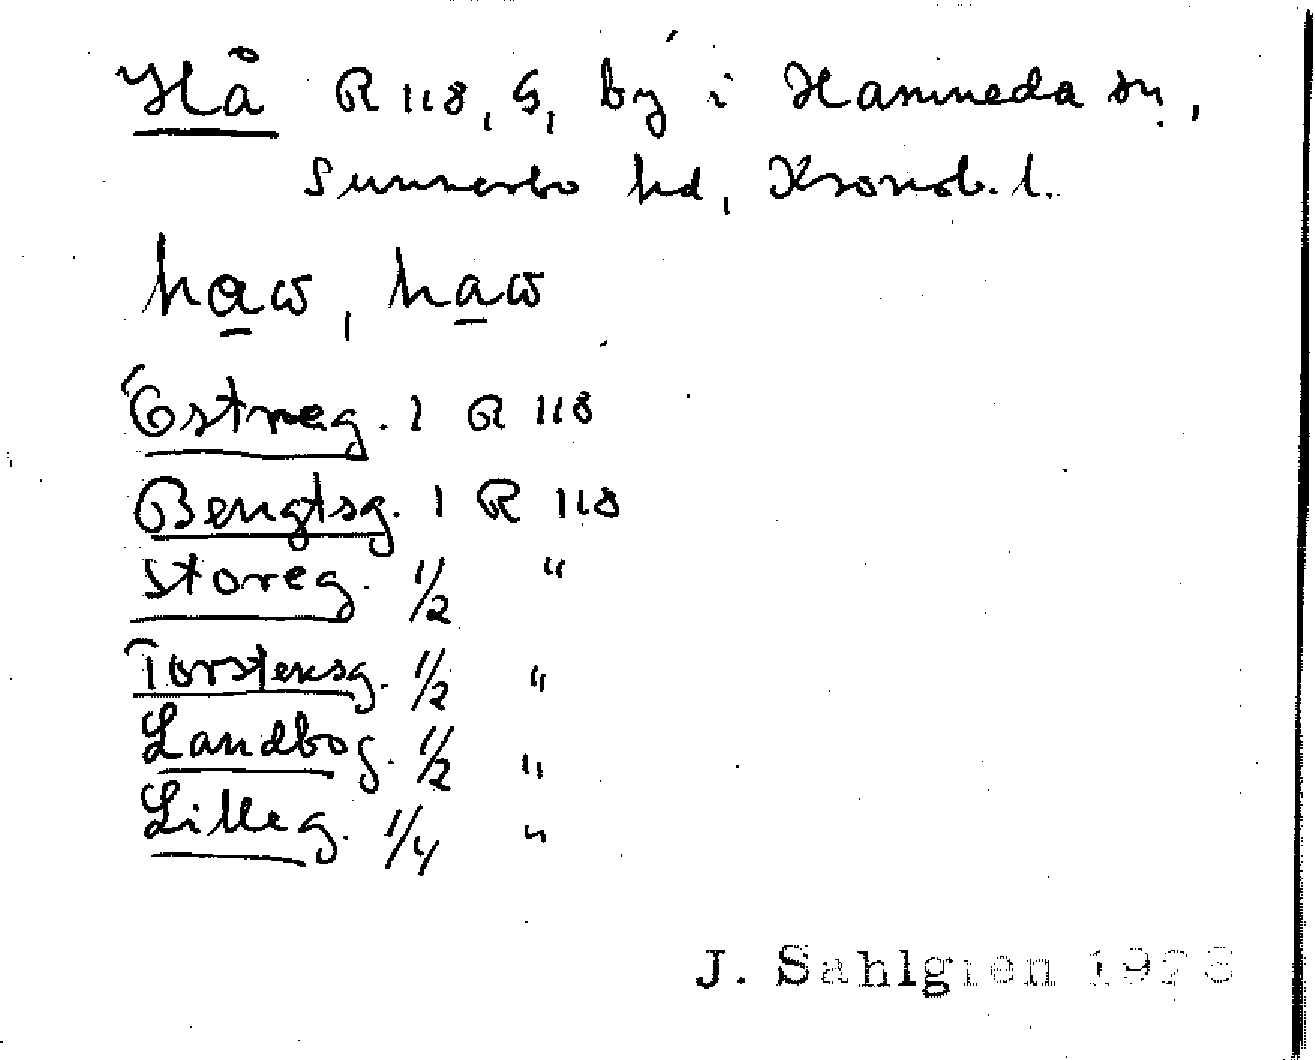 Hå R 118, G, by i Hamneda sn,
Sunnerbo hd, Kronob. l.
haw, haw
Östreg. 1 R 118
Bengtsg. 1 R 118
Storeg. 1/2 "
Torstensg. 1/2 "
Landbog. 1/2 "
Lilleg. 1/4 "
J. Sahlgren